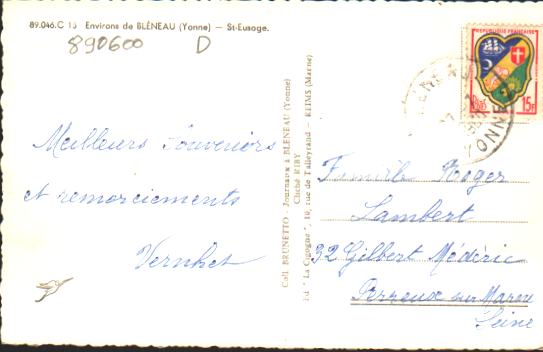 89.046.C 15 Environs de BLÉNEAU (Yonne) — St-Eusoge.
890600 D
Meilleurs Souvenirs
et remerciements
Vernhet
Coll. BRUNETTO - Journaux à BLENEAU (Yonne)
Cliché RIBY
Ed " La Cigogne ", 10, rue de Talleyrand - REIMS (Marne)
REPUBLIQUE FRANÇAISE
15F
YONNE
Famille Roger
Lambert
92 Gilbert Médéric
Perreux sur Marne
Seine